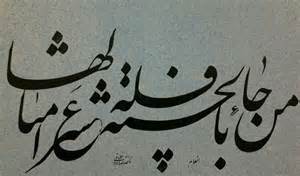 من جاء بالحسنة فله عشر امثالها